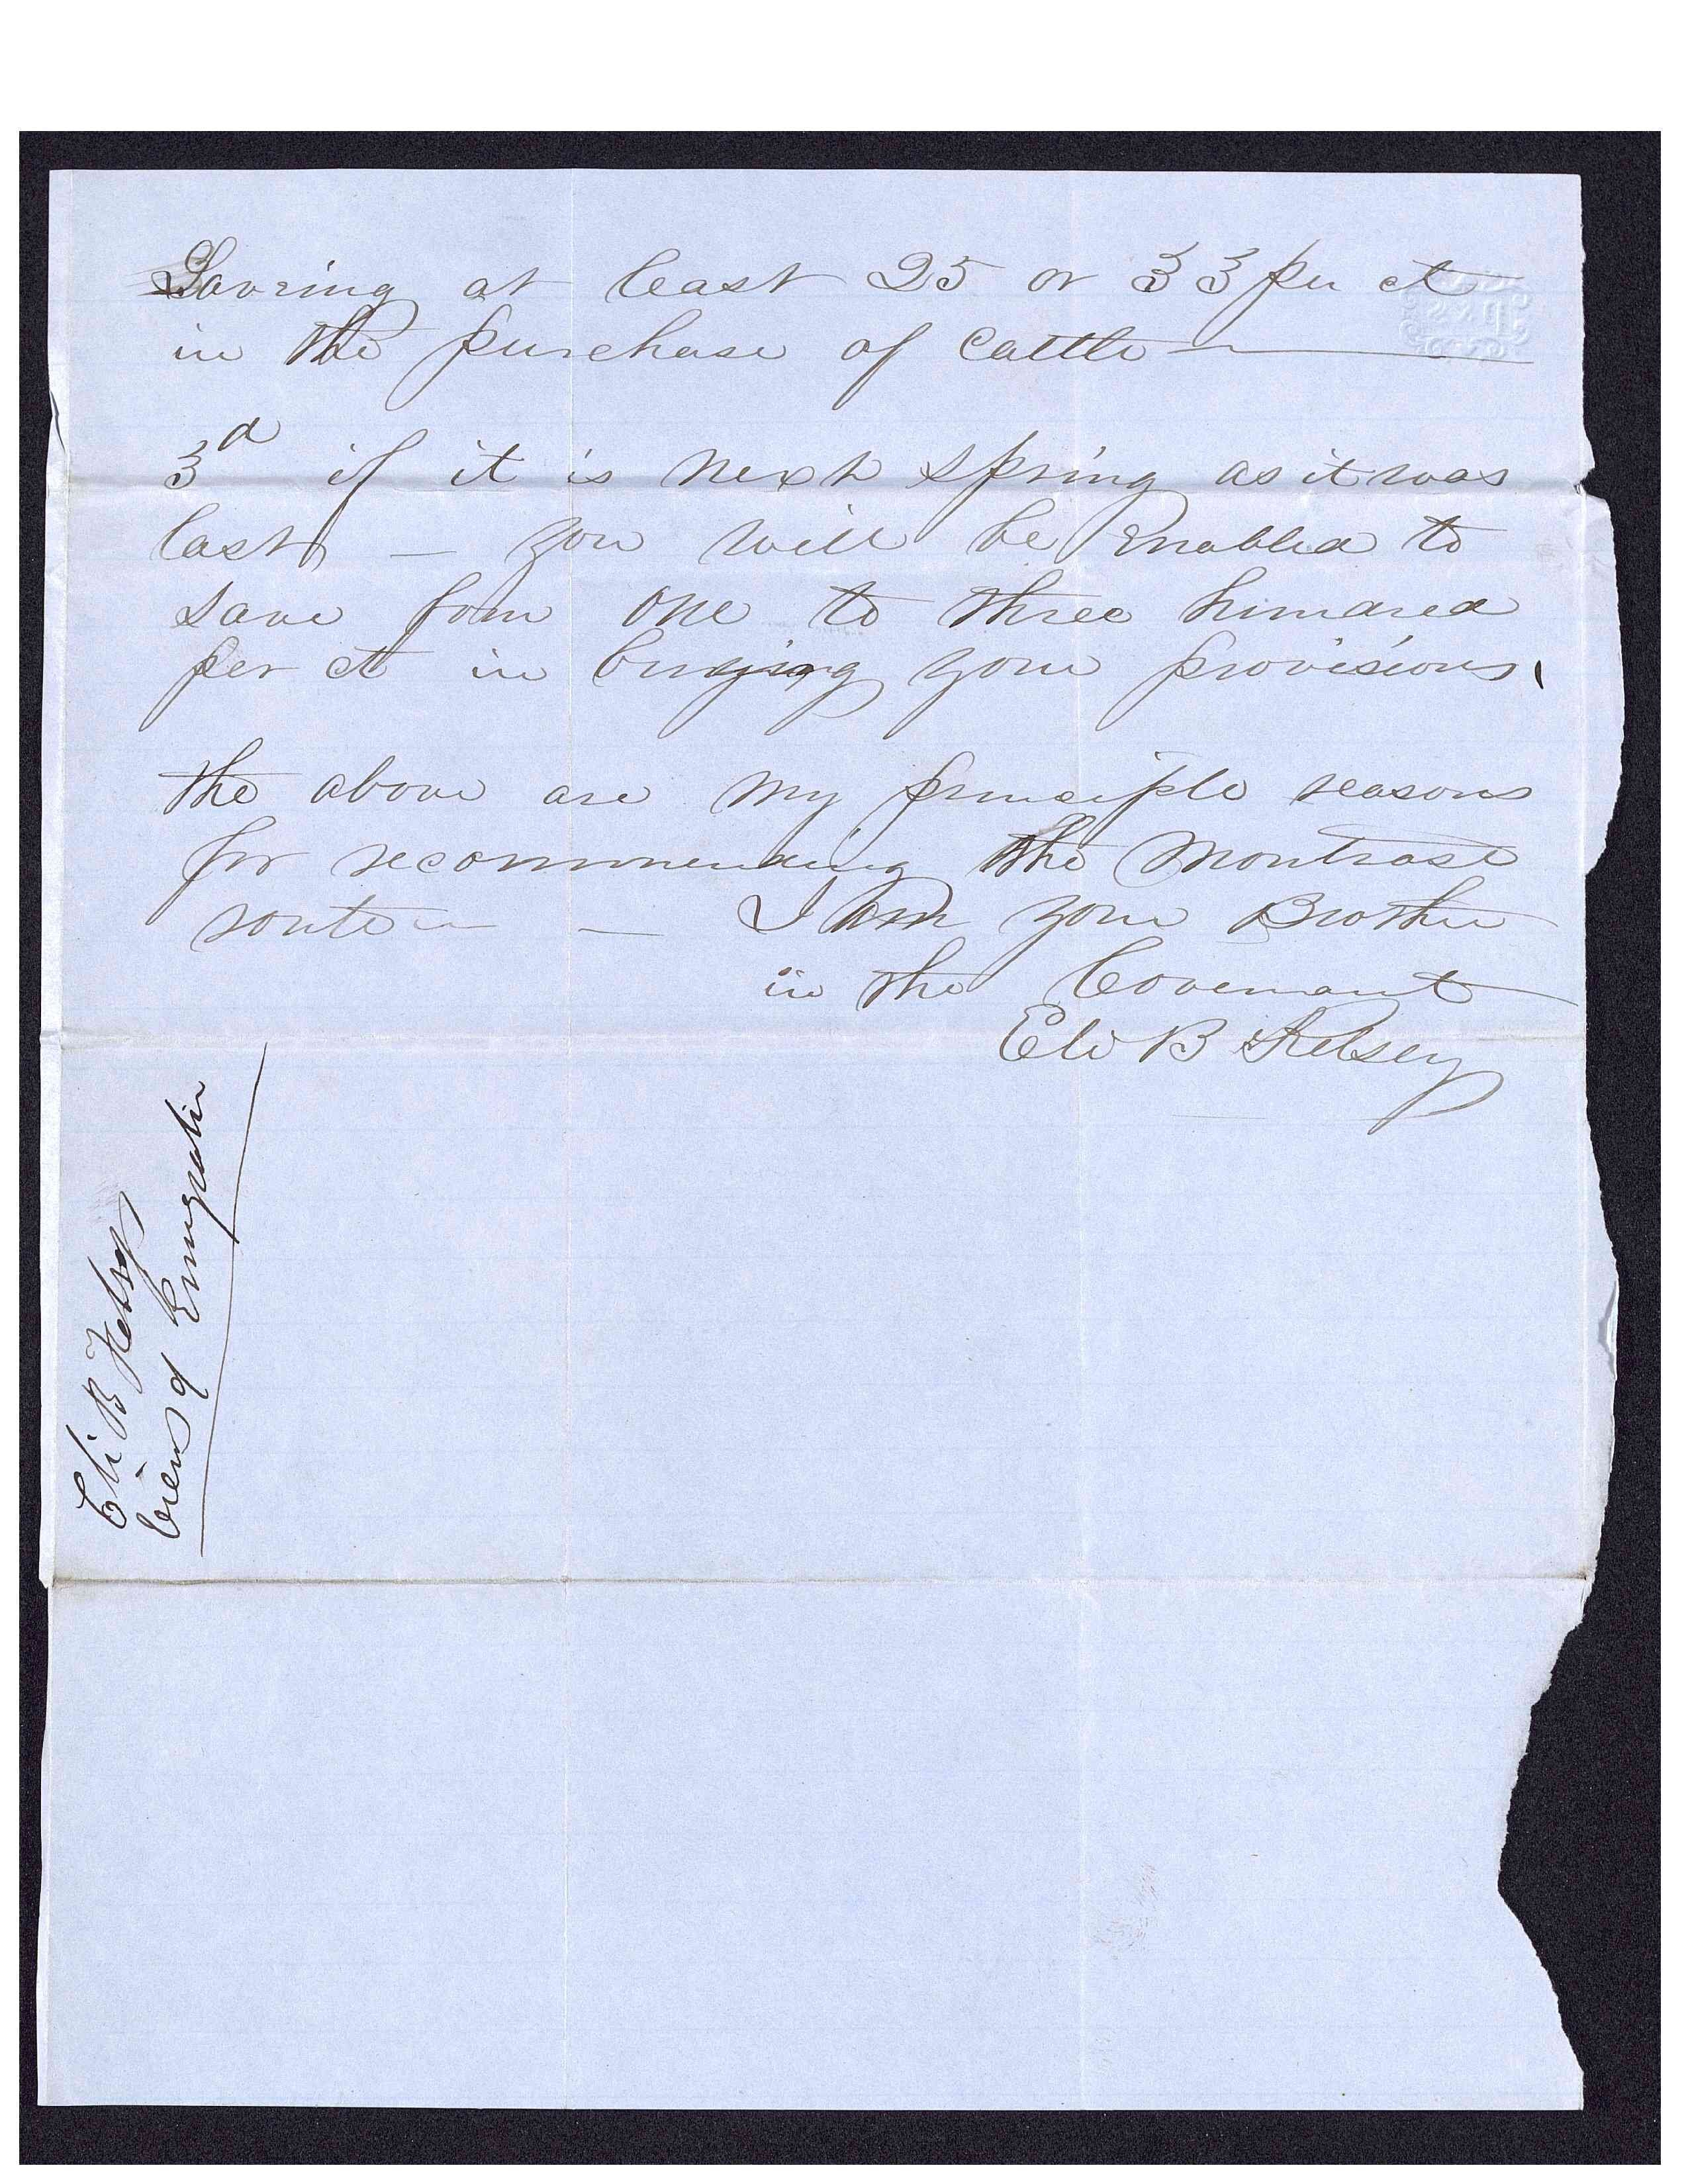 Saving at least 25 or 33 per ct
in the purchase of cattle
3d if it is next spring as it was
last — you will be Enabled to
save from one to three hundred
per ct in buying your provisions,
the above are my principle reasons
for recommending the Montrose
route — I am your Brother
in the Covenant
Eli B Kelsey
Eli B Kelsey
views of Emigration